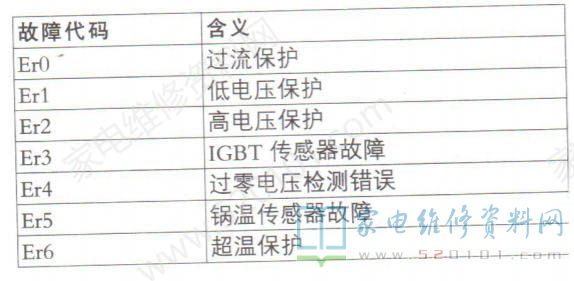 故障代码 含义
Er0 过流保护
Er1 低电压保护
Er2 高电压保护
Er3 IGBT 传感器故障
Er4 过零电压检测错误
Er5 锅温传感器故障
Er6 超温保护
家电维修资料网
www.520101.com